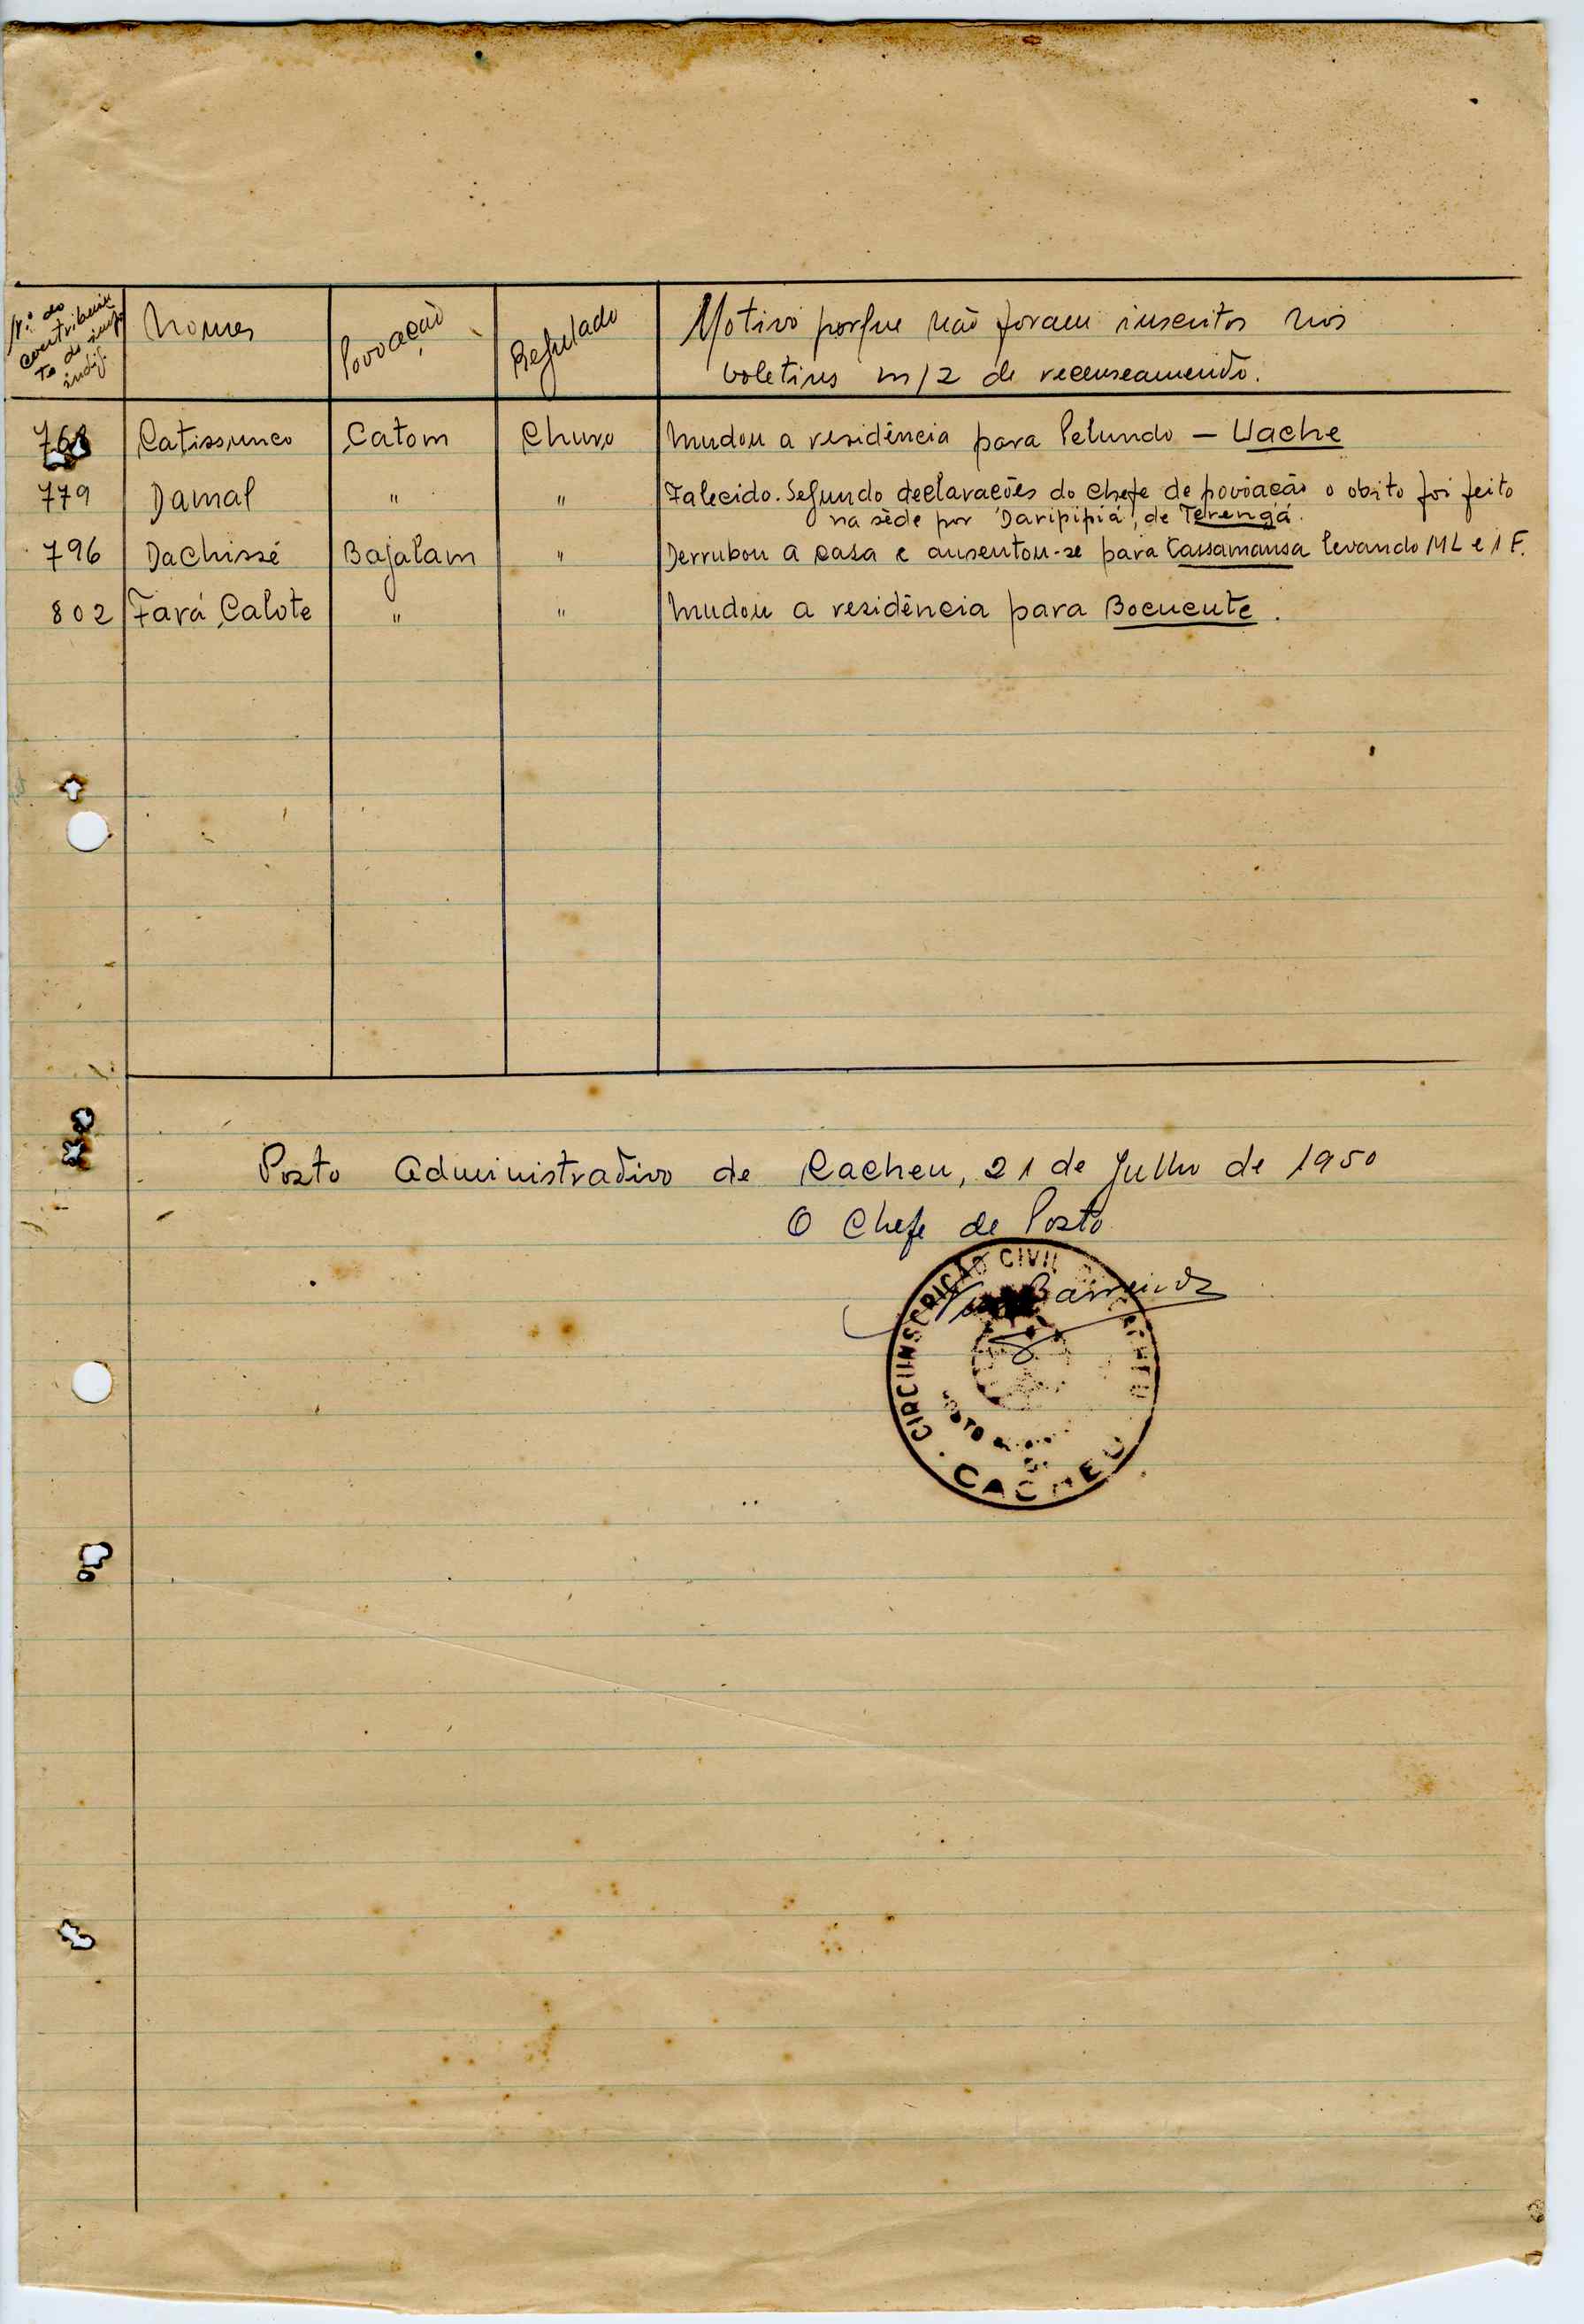 N.º do contribuinte do imp. indíg. Nomes Povoação Regulado Motivo porque não foram inscritos nos
boletins m/2 de recenseamento.
768 Catissunco Catom Churo Mudou a residência para Pelundo — Uache
779 Damal " " Falecido. Segundo declarações do chefe de povoação o óbito foi feito
na séde por 'Daripipiá', de Terengá.
796 Dachissé Bajalam " Derrubou a casa e ausentou-se para Cassamansa levando 1 ML e 1 F.
802 Fará Calote " " Mudou a residência para Bocucute.
Posto Administrativo de Cacheu, 21 de Julho de 1950
O Chefe de Posto
Barreiros
CIRCUNSCRIÇÃO CIVIL DE CACHEU
POSTO
CACHEU